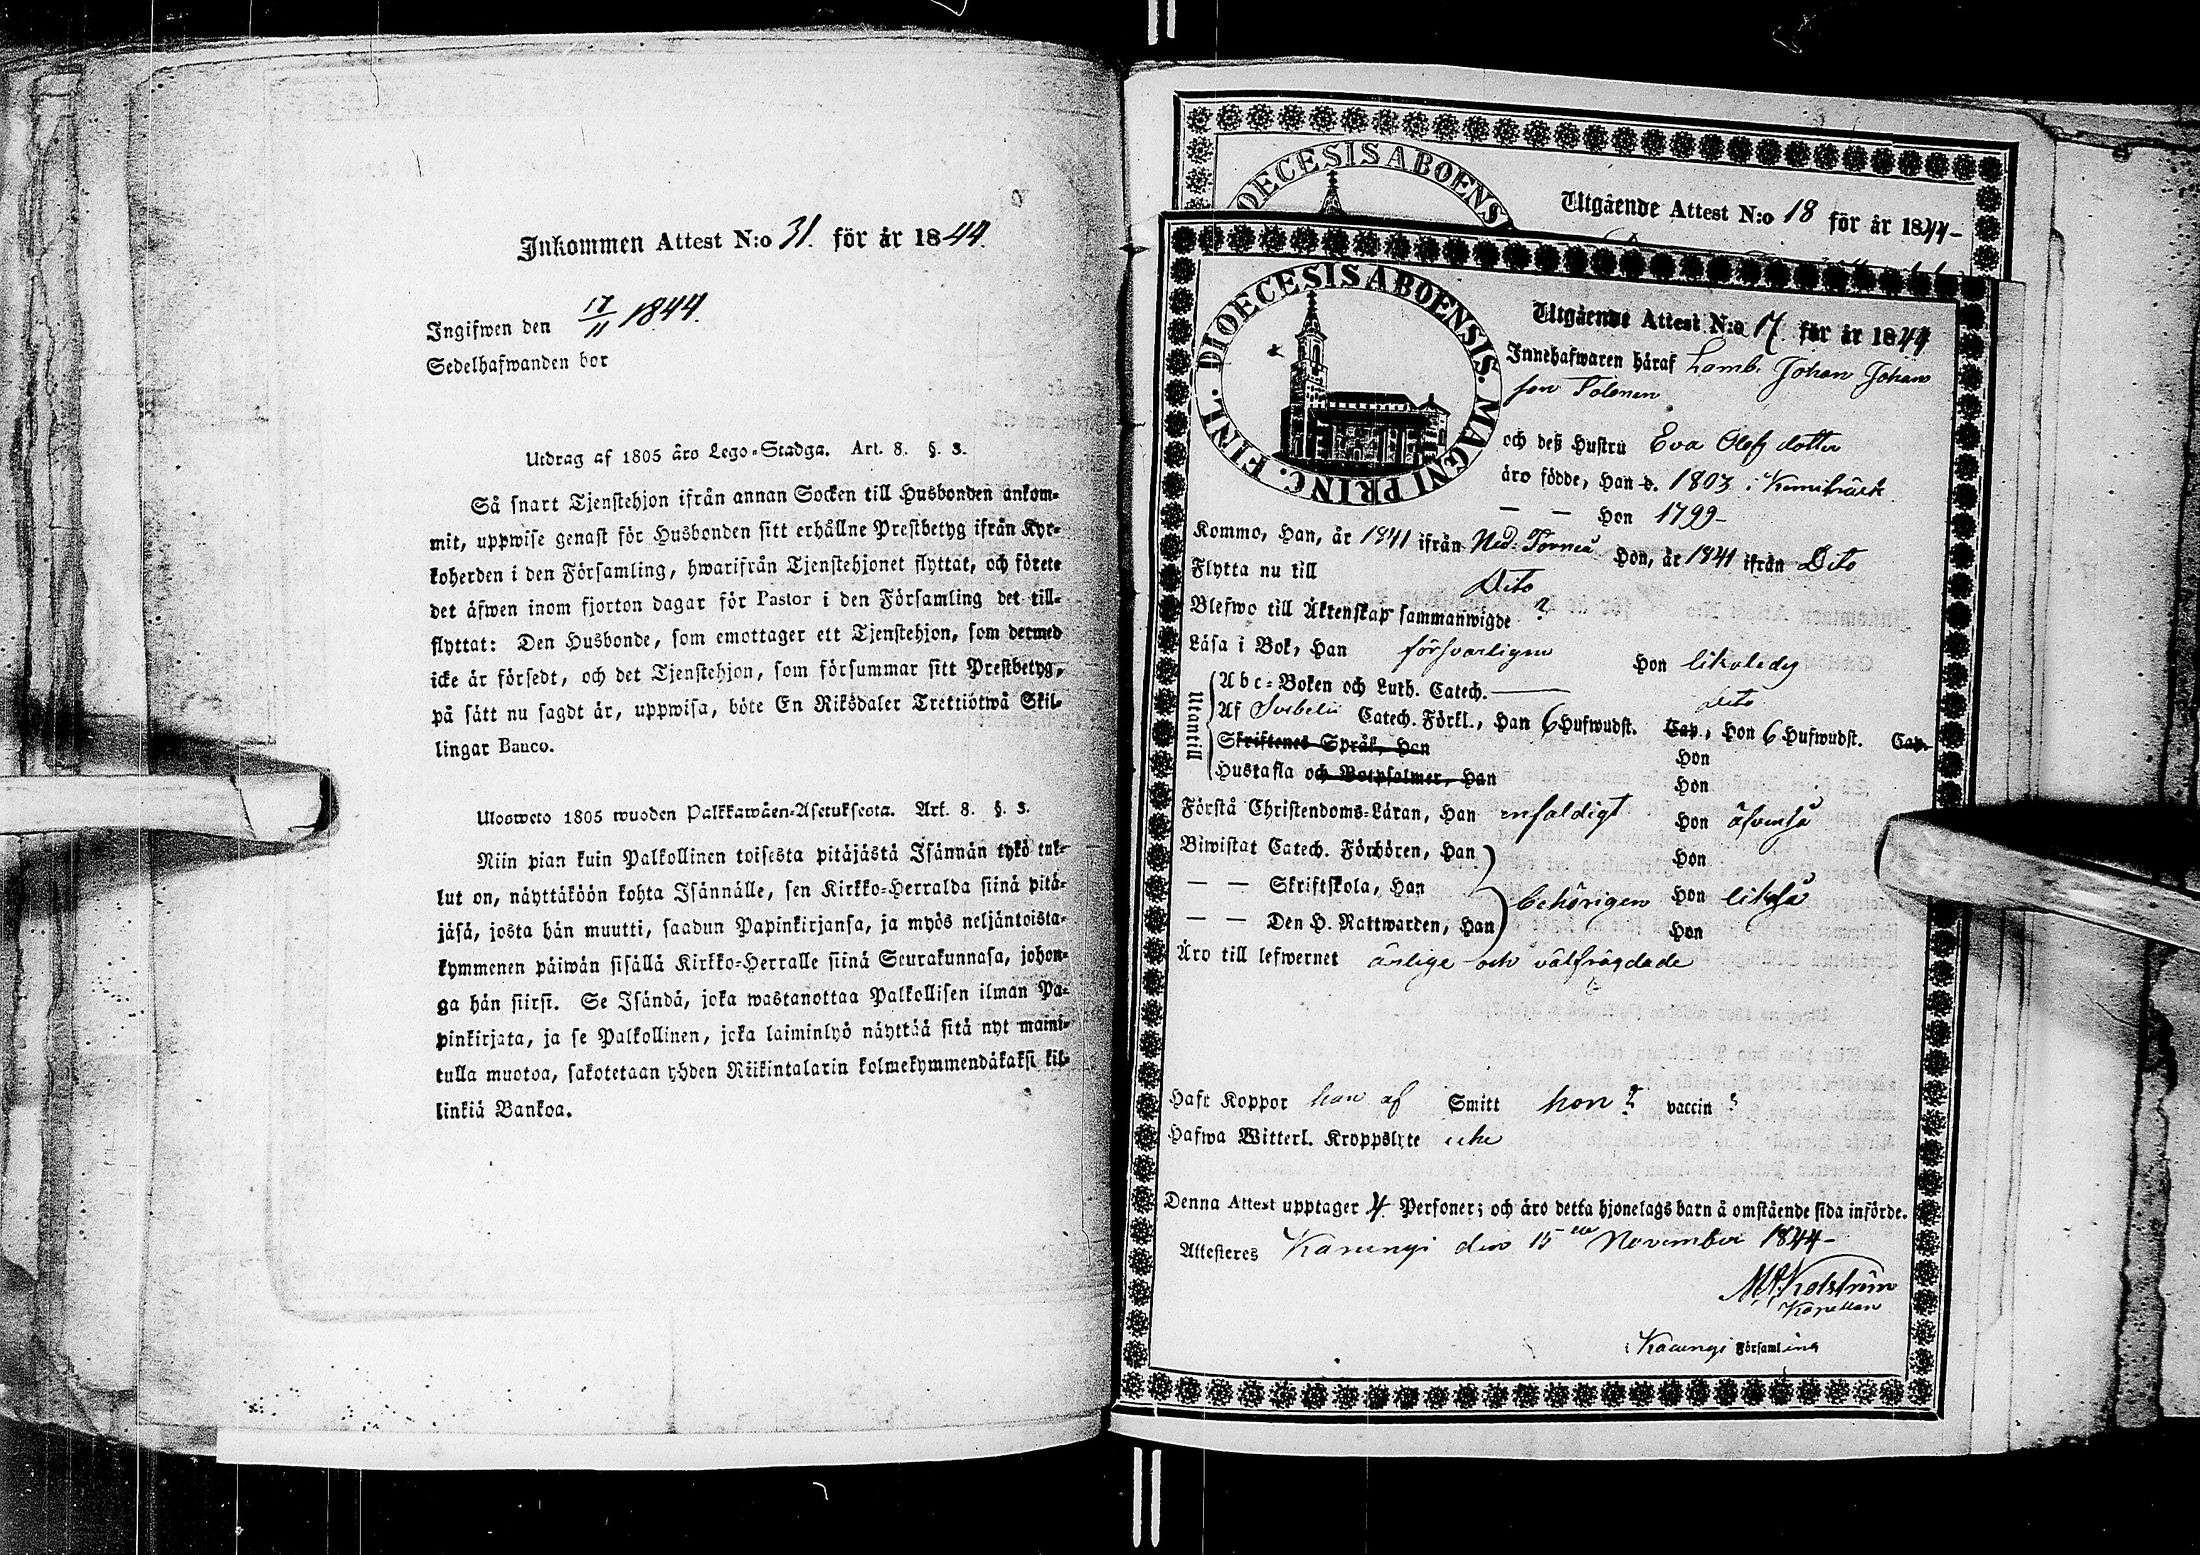 Inkommen Attest N:o 31. för år 1844.
Ingifwen den 17/11 1844.
Sedelhafwanden bor
Utdrag af 1805 års Lego-Stadga. Art. 8. §. 3.
Så snart Tjenstehjon ifrån annan Socken till Husbonden ankom-
mit, uppwise genast för Husbonden sitt erhållne Prestbetyg ifrån Kyr-
koherden i den Församling, hwarifrån Tjenstehjonet flyttat, och förete
det äfwen inom fjorton dagar för Pastor i den Församling det till-
flyttat: Den Husbonde, som emottager ett Tjenstehjon, som dermed
icke är försedt, och det Tjenstehjon, som försummar sitt Prestbetyg,
på sätt nu sagdt är, uppwisa, böte En Riksdaler Trettiotwå Skil-
lingar Banco.
Ulosweto 1805 wuoden Palkkawäen-Asetuksesta. Art. 8. §. 3.
Niin pian kuin Palkollinen toisesta pitäjästä Isännän tykö tul-
lut on, näyttäköön kohta Isännälle, sen Kirkko-Herralda siinä pitä-
jäsä, josta hän muutti, saadun Papinkirjansa, ja myös neljäntoista-
kymmenen päiwän sisällä Kirkko-Herralle siinä Seurakunnasa, johon-
ga hän siirsi. Se Isändä, joka wastanottaa Palkollisen ilman Pa-
pinkirjata, ja se Palkollinen, joka laiminlyö näyttää sitä nyt maini-
tulla muotoa, sakotetaan yhden Riikintalarin kolmekymmendäkaksi kil-
linkiä Bankoa.
DIOECESIS ABOENS
Utgående Attest N:o 18 för år 1844-
DIOECESIS ABOENSIS. MAGNI PRINC. FINL.
Utgående Attest N:o 17. för år 1844
Innehafwaren häraf Johan Johans
son
och deß Hustru Eva Olofsdotter
äro födde, Han d. 1803 i
— — Hon 1799-
Kommo, Han, år 1841 ifrån Ned: Torneå Hon, år 1841 ifrån Dito
Flytta nu till Dito
Blefwo till Äktenskap sammanwigde ?
Läsa i Bok, Han försvarligen Hon likaledes
Utantill
Abc-Boken och Luth. Catech. —
Dito
Af Svebelii Catech. Förkl., Han 6 Hufwudst. Cap., Hon 6 Hufwudst. Cap.
Skriftenes Språk, Han Hon
Hustafla och Botpsalmer, Han Hon
Förstå Christendoms-Läran, Han enfaldigt Hon äfvenså
Biwistat Catech. Förhören, Han Hon
— — Skriftskola, Han behörigen Hon likaså
— — Den H. Nattwarden, Han Hon
Äro till lefwernet ärlige och välfrägdade
Haft Koppor han af Smitt hon ? vaccin ?
Hafwa Witterl. Kroppslyte icke
Denna Attest upptager 4. Personer; och äro detta hjonelags barn å omstående sida införde.
Attesteres Karungi den 15 November 1844-
Kapellan
i Karungi Församling